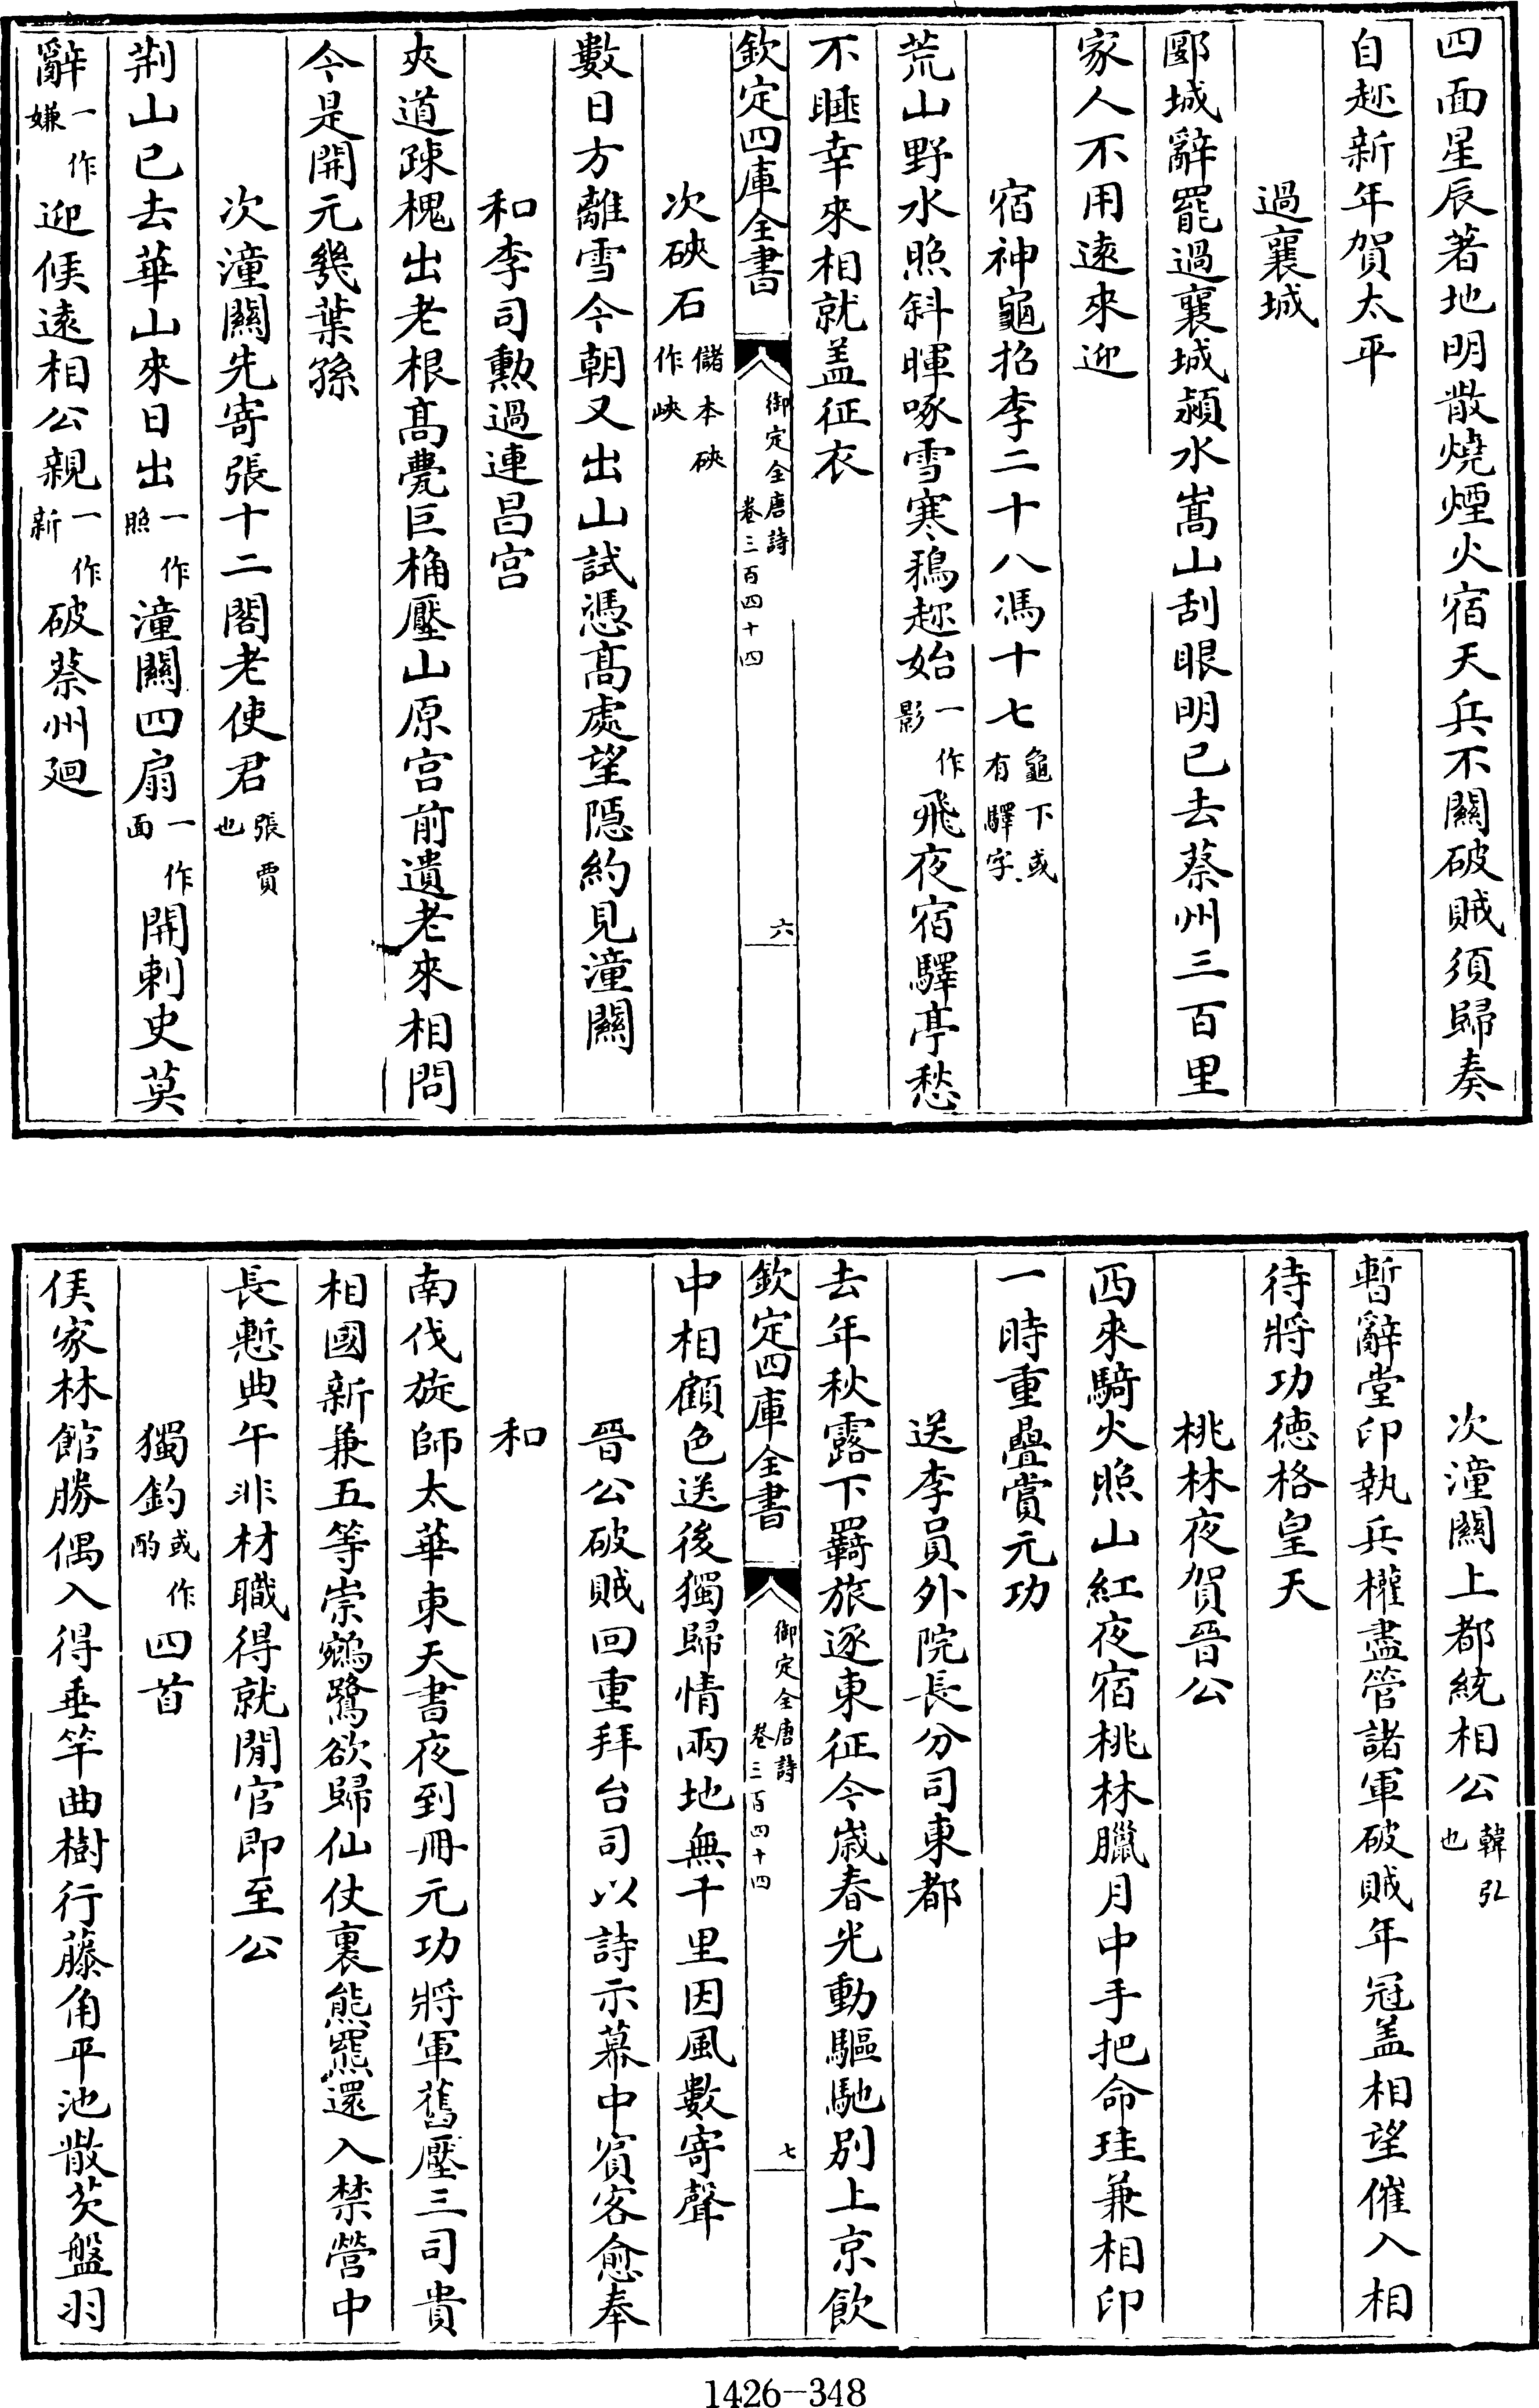 四面星辰著地明散燒煙火宿天兵不關破賊須歸奏
自趂新年賀太平
過襄城
郾城辭罷過襄城潁水嵩山刮眼明已去蔡州三百里
家人不用遠來迎
宿神龜招李二十八馮十七龜下或有驛字
荒山野水照斜暉啄雪寒鴉趂始一作影飛夜宿驛亭愁
不睡幸來相就盖征衣
欽定四庫全書 御定全唐詩 卷三百四十四 六
次硤石儲本硤作峽
數日方離雪今朝又出山試憑髙處望隱約見潼關
和李司勲過連昌宫
夾道疎槐出老根髙甍巨桷壓山原宫前遺老來相問
今是開元幾葉孫
次潼關先寄張十二閣老使君張賈也
荆山已去華山來日出一作照潼關四扇一作面開刺史莫
辭一作嫌迎候遠相公親一作新破蔡州廻
次潼關上都統相公韓弘也
暫辭堂印執兵權盡管諸軍破賊年冠盖相望催入相
待將功德格皇天
桃林夜賀晉公
西來騎火照山紅夜宿桃林臘月中手把命珪兼相印
一時重疊賞元功
送李員外院長分司東都
去年秋露下羇旅逐東征今歳春光動驅馳别上京飲
欽定四庫全書 御定全唐詩 卷三百四十四 七
中相顧色送後獨歸情兩地無千里因風數寄聲
晉公破賊回重拜台司以詩示幕中賓客愈奉
和
南伐旋師太華東天書夜到冊元功將軍舊壓三司貴
相國新兼五等崇鵷鷺欲歸仙仗裏熊羆還入禁營中
長慙典午非材職得就閒官即至公
獨釣或作酌四首
侯家林館勝偶入得垂竿曲樹行藤角平池散芡盤羽
1426-348